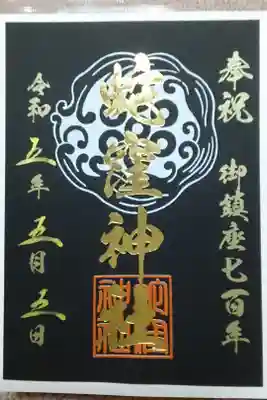 奉祝 御鎮座七百年
蛇窪神社
令和五年五月五日
蛇窪神社